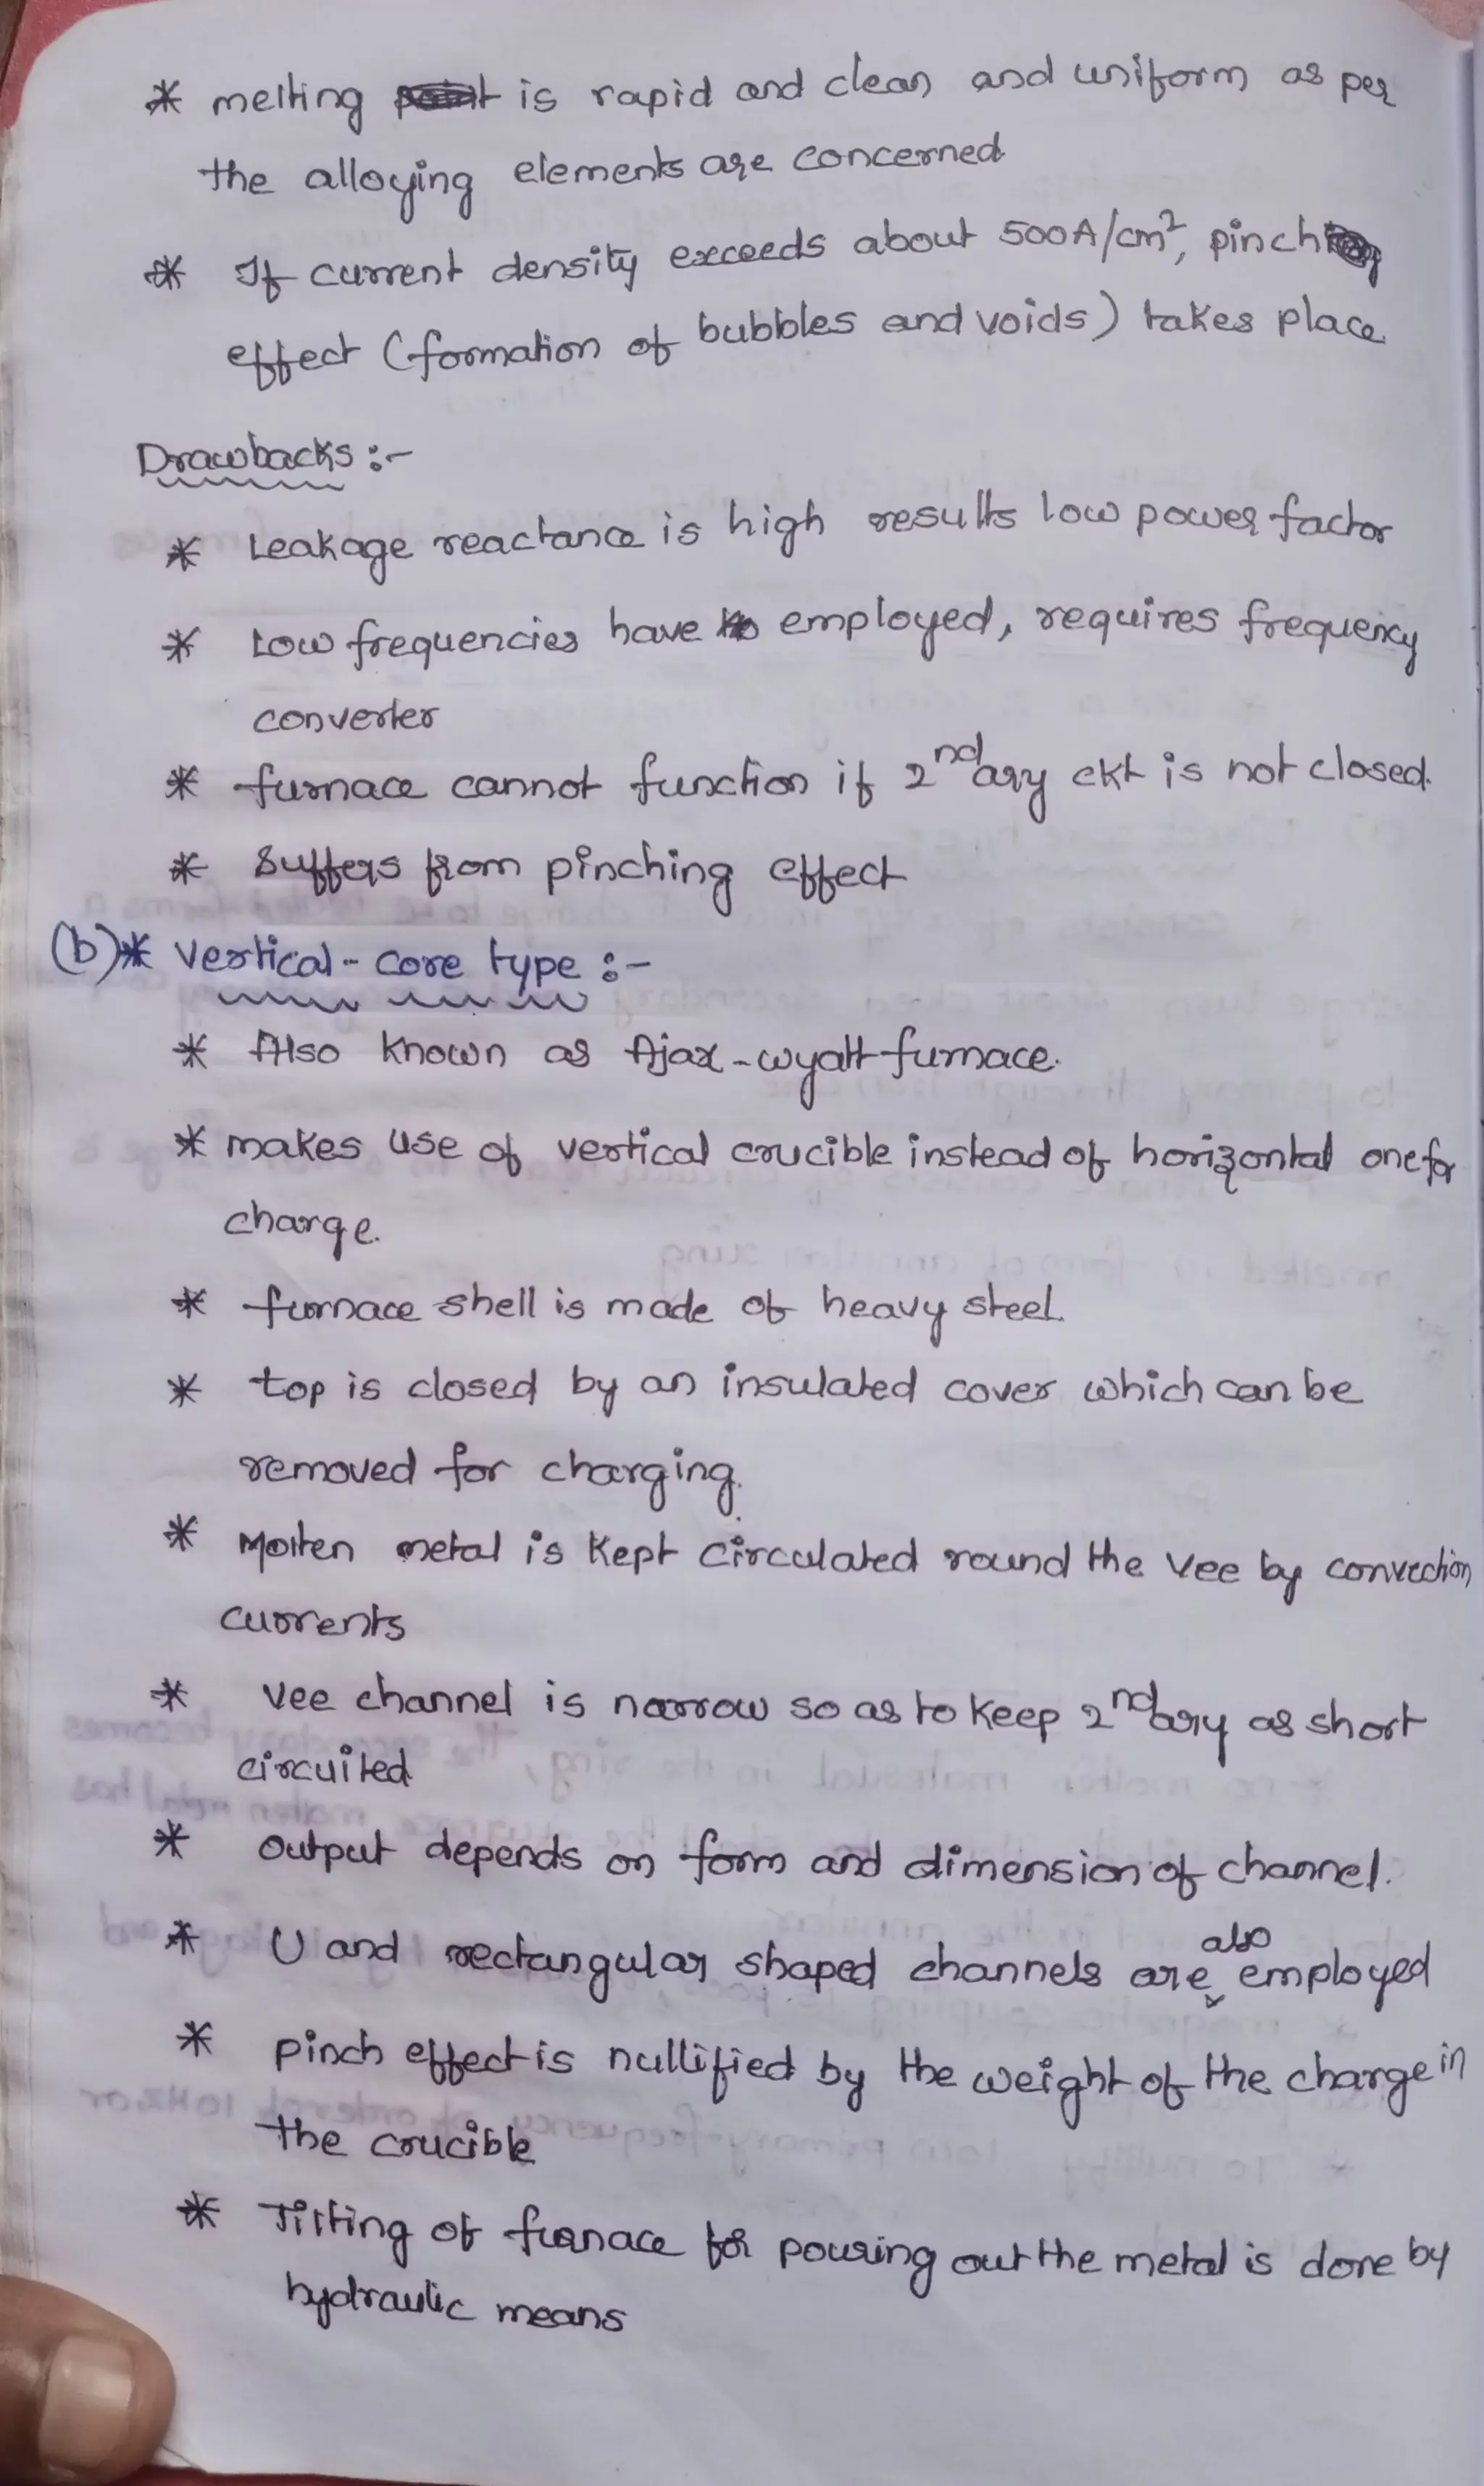 * melting is rapid and clean and uniform as per
the alloying elements are concerned
* If current density exceeds about 500A/cm², pinch
effect (formation of bubbles and voids) takes place.
Drawbacks :-
* Leakage reactance is high results low power factor
* Low frequencies have to employed, requires frequency
converter
* furnace cannot function if 2ndary ckt is not closed.
* Suffers from pinching effect
(b)* Vertical - core type :-
* Also known as Ajax-wyatt furnace.
* makes use of vertical crucible instead of horizontal one for
charge.
* furnace shell is made of heavy steel.
* top is closed by an insulated cover which can be
removed for charging.
* Molten metal is kept circulated round the vee by convection
currents
* vee channel is narrow so as to keep 2ndary as short
circuited
* output depends on form and dimension of channel.
* U and rectangular shaped channels are also employed
* pinch effect is nullified by the weight of the charge in
the crucible
* Tilting of furnace for pouring out the metal is done by
hydraulic means